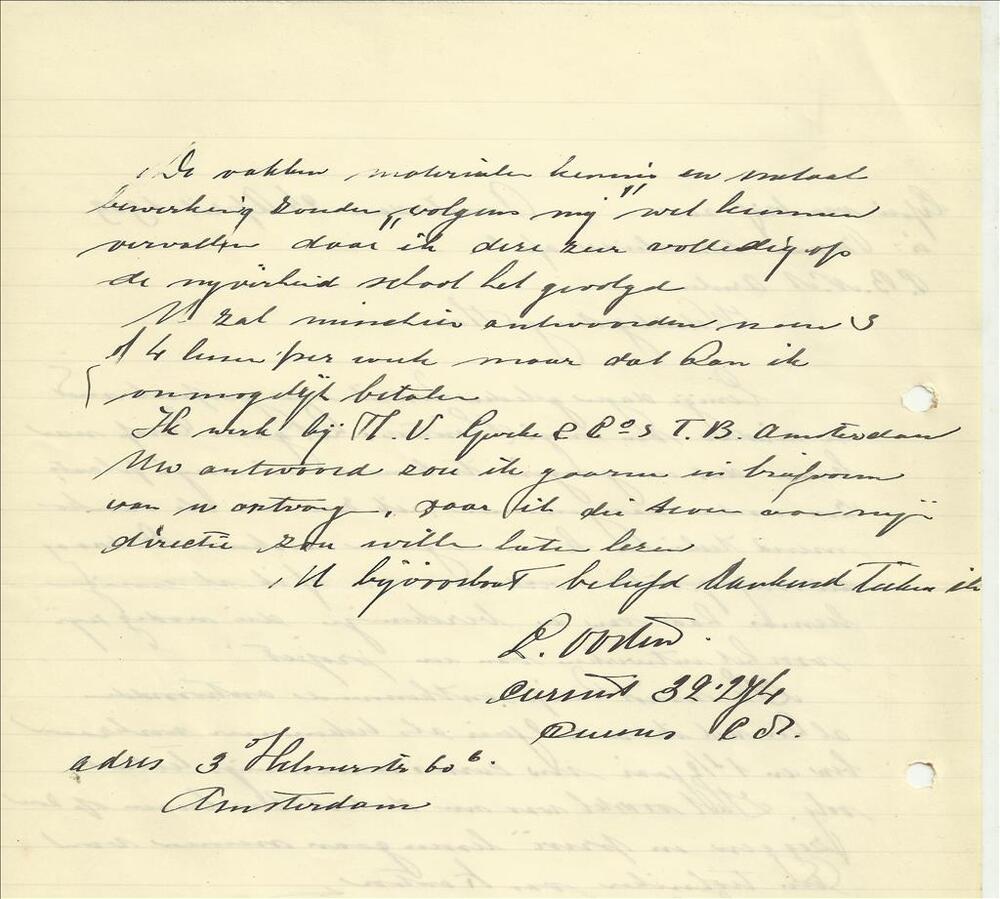 De vakken materialen kennis en metaal
bewerking zouden „volgens mij" wel kunnen
vervallen daar ik deze zeer volledig op
de nijverheid school heb gevolgd
U zal misschien antwoorden neem 3
à 4 lessen per week maar dat kan ik
onmogelijk betalen
Ik werk bij N. V. & Co's T. B. Amsterdam
Uw antwoord zou ik gaarne in briefvorm
van u ontvangen, daar ik die tevens aan mijn
directie zou willen laten lezen
U bijvoorbaat beleefd dankend teken ik
L. Oosten
cursist 39.274
Cursus
adres 3e Helmerstr 60 b.
Amsterdam